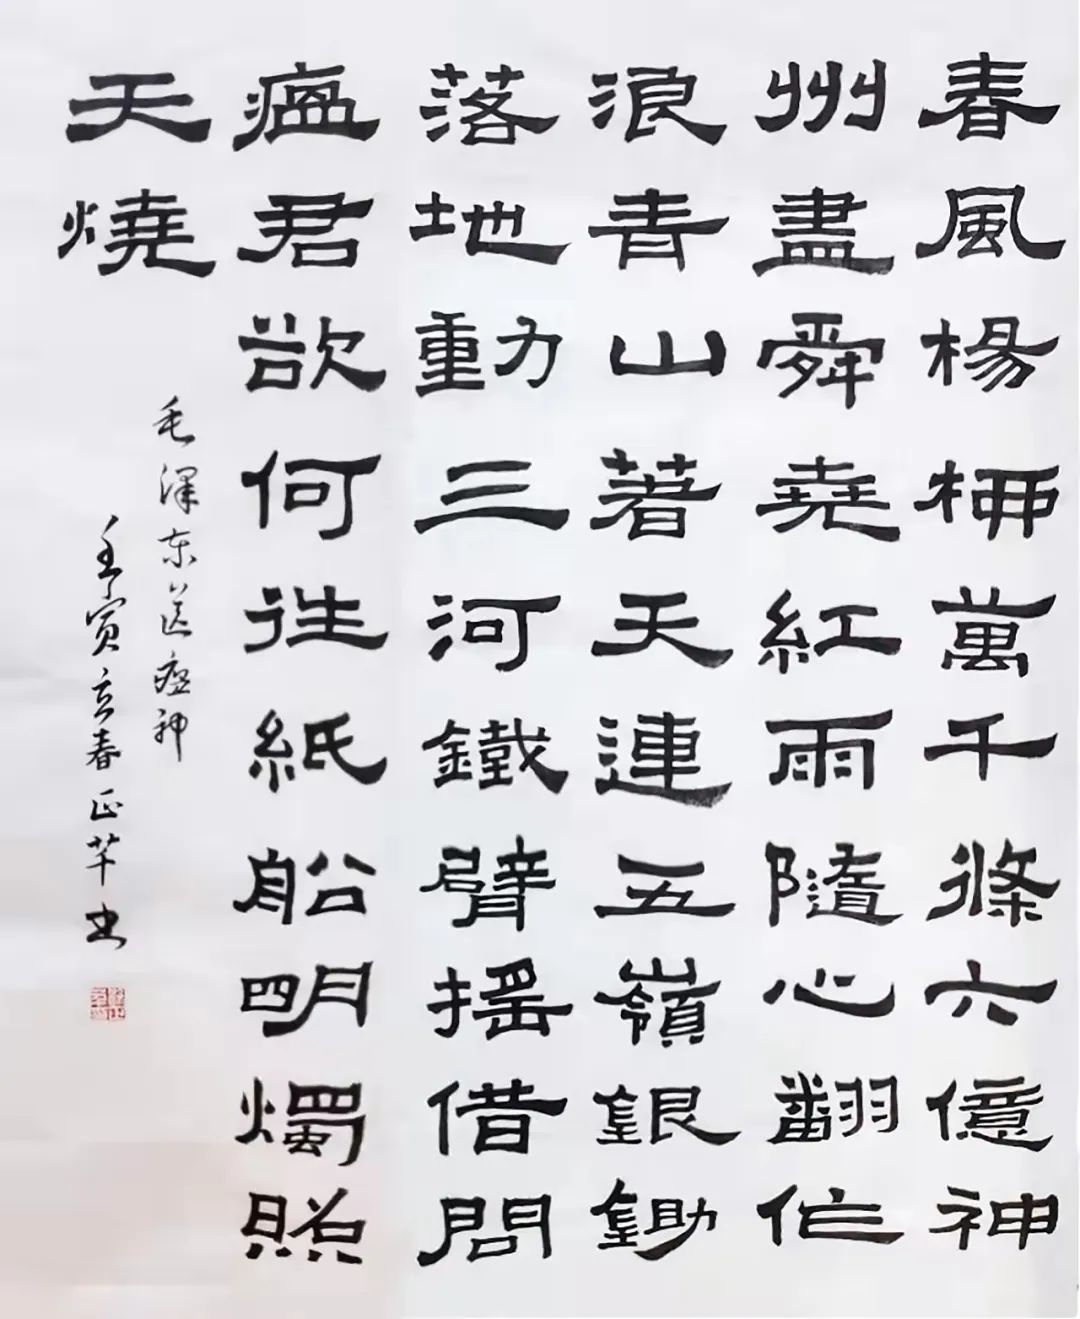 春風楊柳萬千條六億神
州盡舜堯紅雨隨心翻作
浪青山著天連五嶺銀鋤
落地動三河鐵臂搖借問
瘟君欲何往紙船明燭照
天燒
毛泽东送瘟神
壬寅立春正芊书